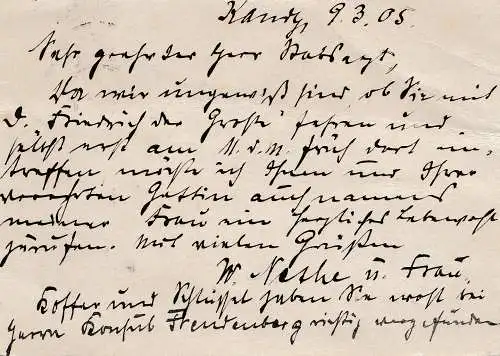 Kandy, 9.3.05.
Sehr geehrter Herr Stabsarzt,
Da wir ungewiß sind, ob Sie mit
D. Friedrich der Große" fahren und
selbst erst am 11. d. M. früh dort ein-
treffen möchte ich Ihnen und Ihrer
verehrten Gattin auch namens
meiner Frau ein herzliches Lebewohl
zurufen. Mit vielen Grüßen
W. Nethe u. Frau.
Koffer und Schlüssel haben Sie wohl bei
Herrn Konsul Freudenberg richtig vorgefunden